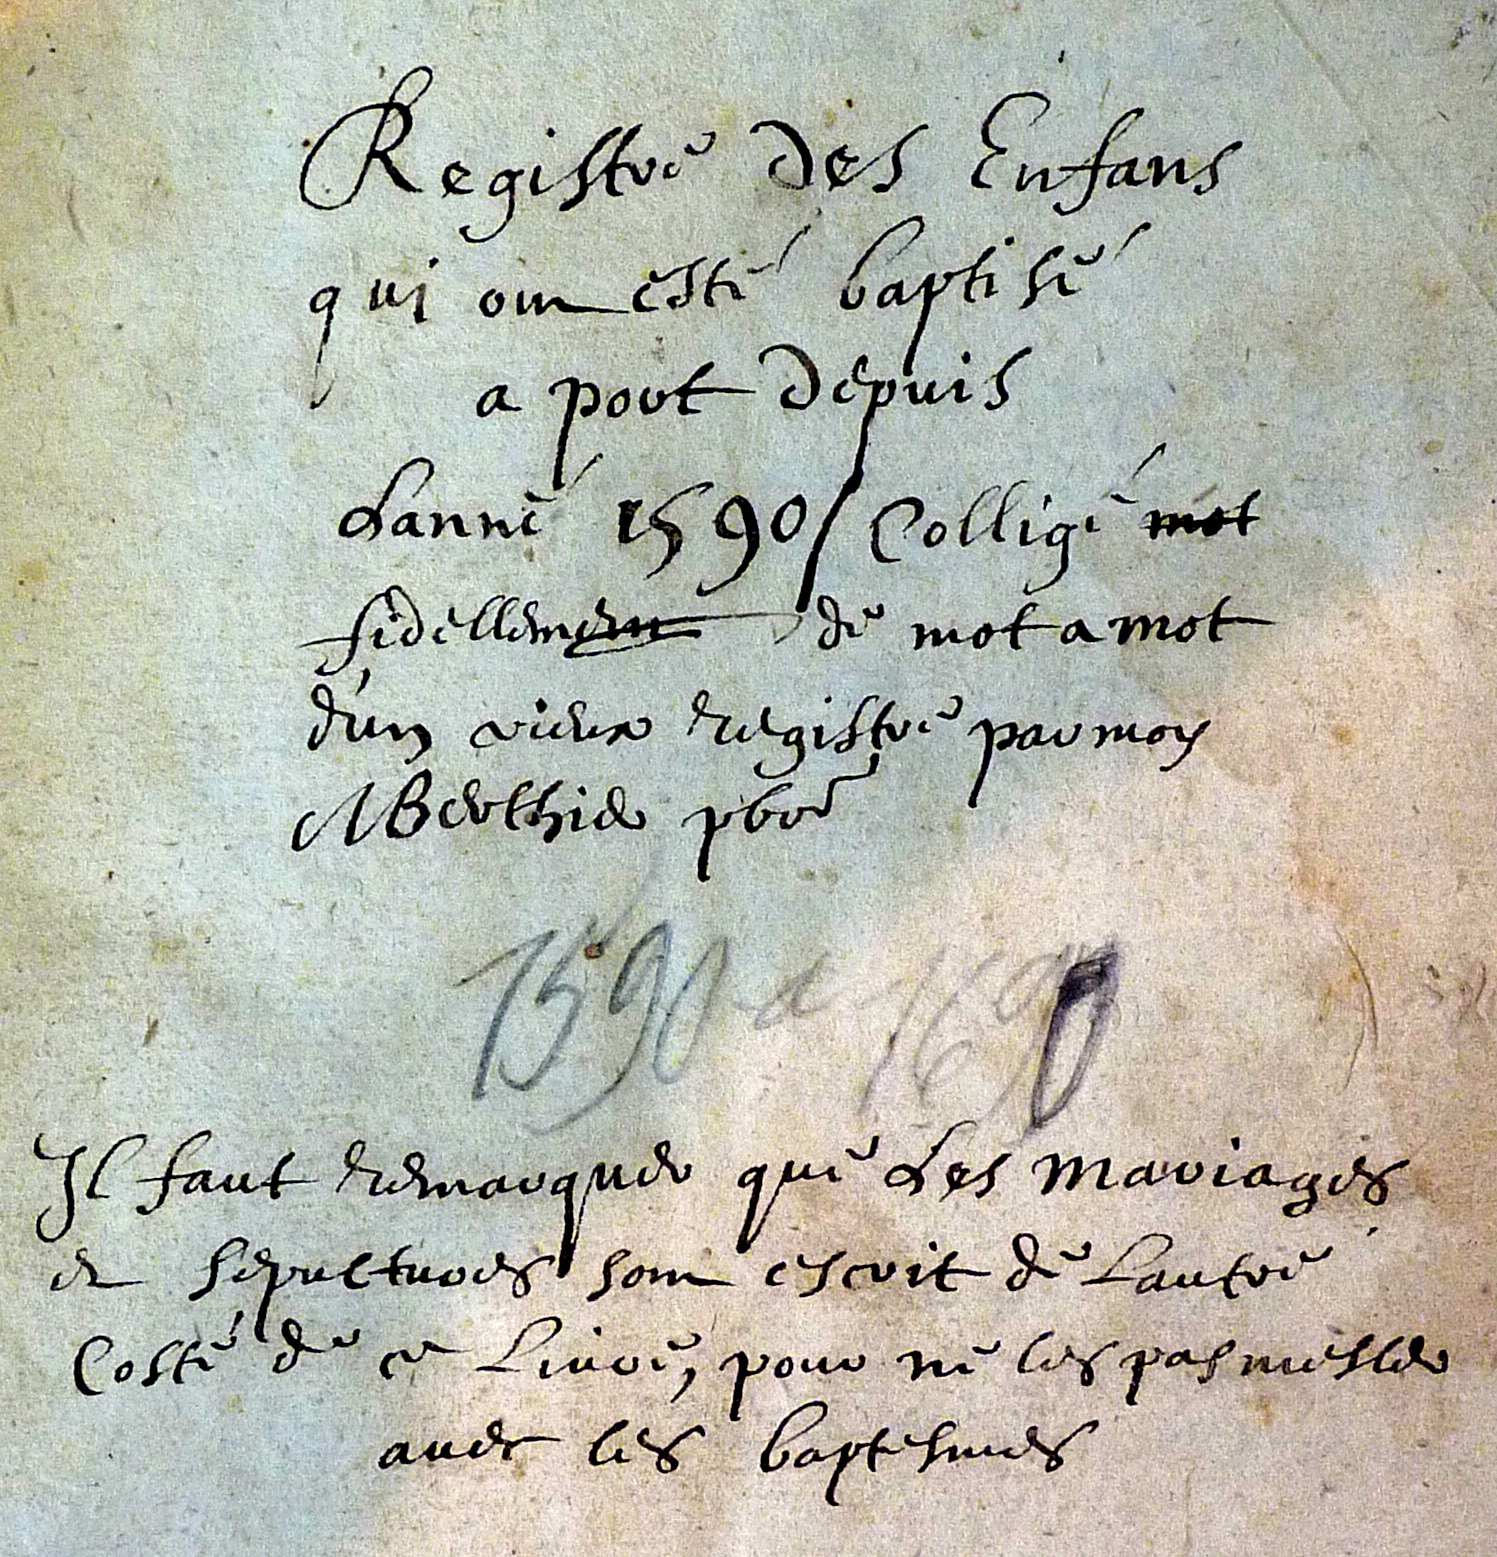 Registre des Enfans
qui ont esté baptisé
a port depuis
Lanné 1590 / Colligé mot
fidellement de mot a mot
d'un vieux registre par moy
MBerthier pbre
1590 a 1690
Il faut remarquer que Les mariages
et sepultures sont escrit de Lautre
Costé de ce Livre, pour ne les pas mesler
avec les baptesmes